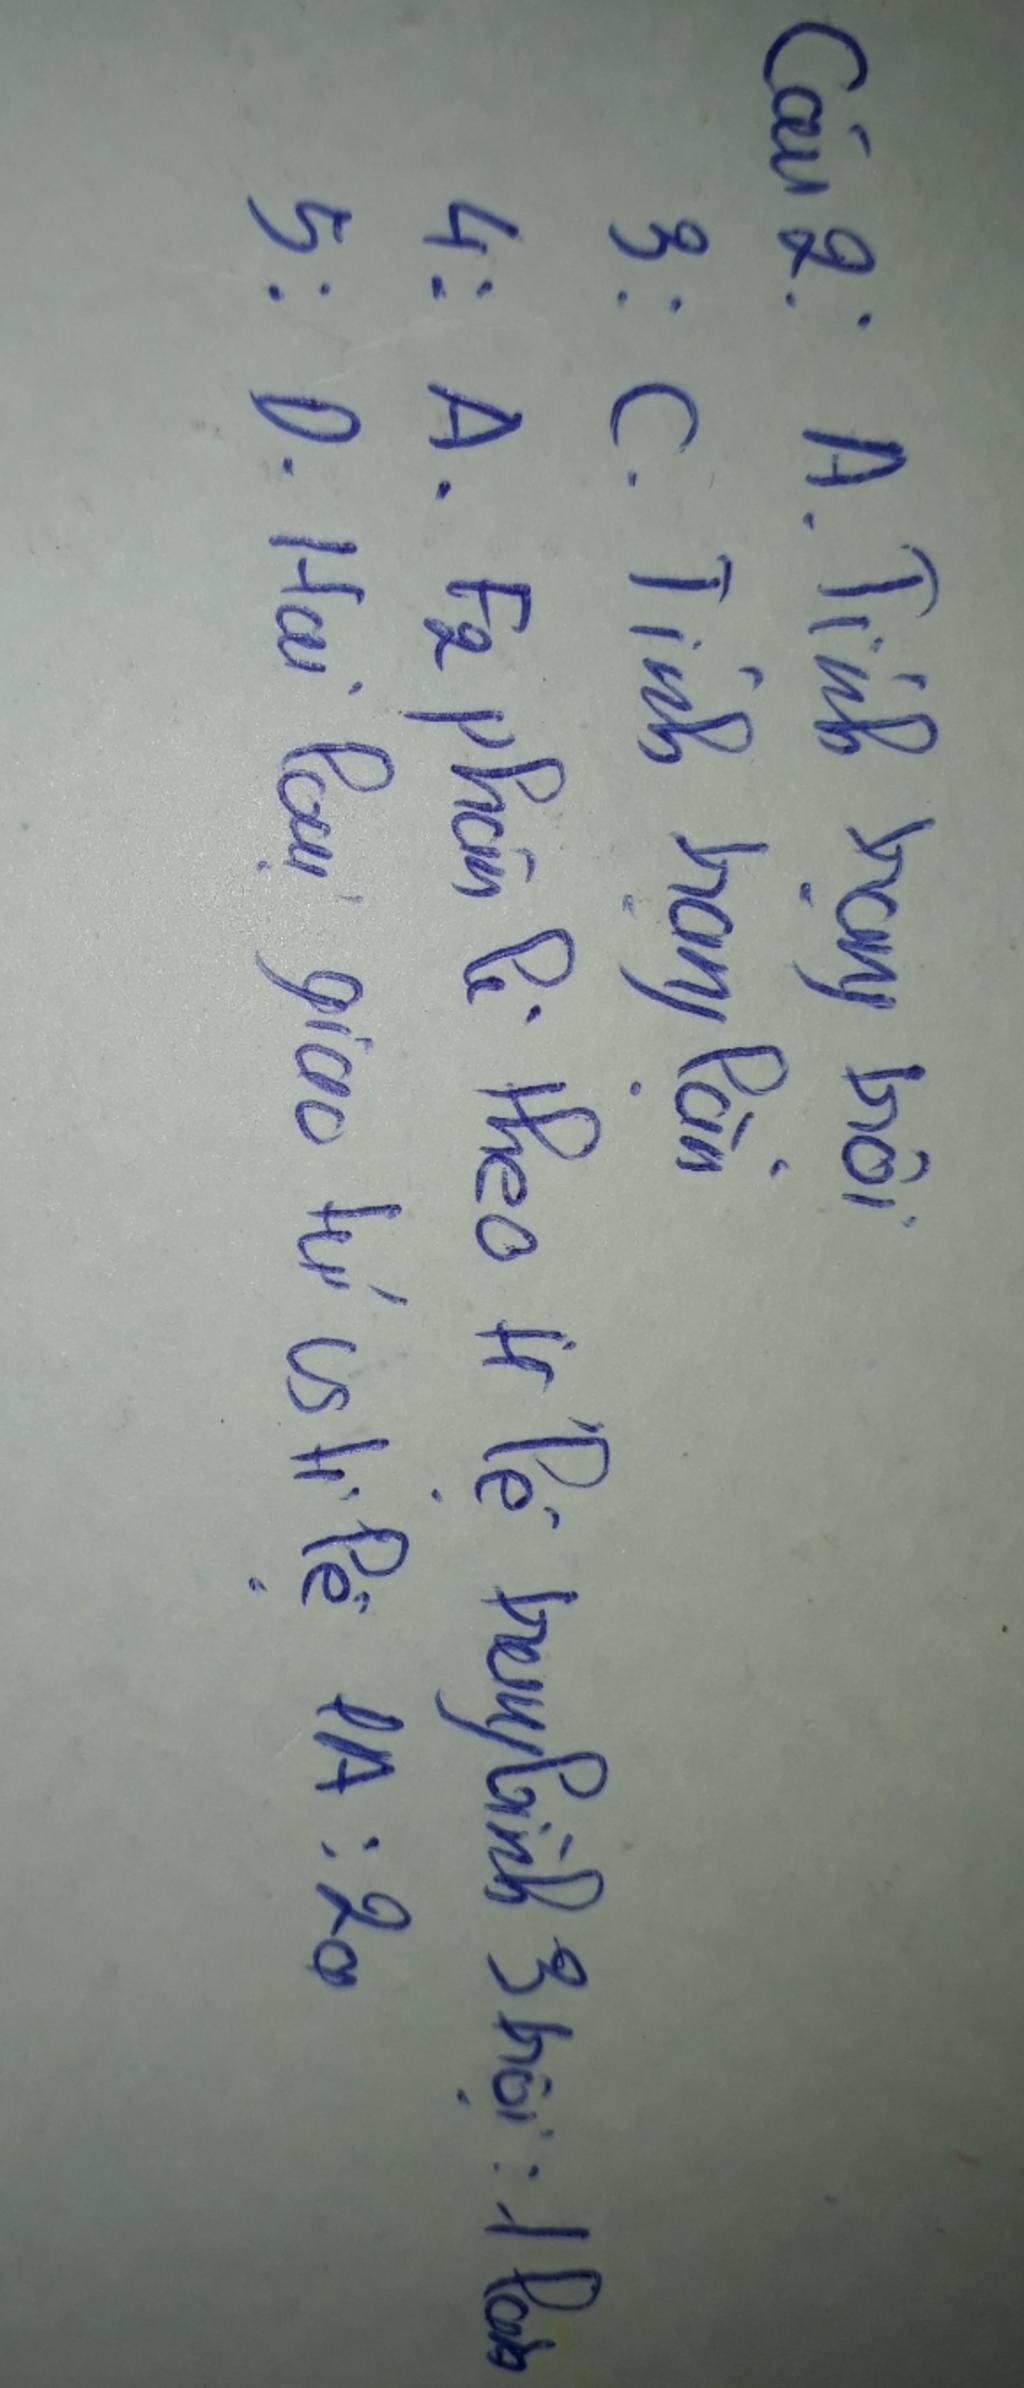 Câu 2: A. Tính trạng trội
3: C. Tính trạng lặn
4: A. F2 phân li theo tỉ lệ trung bình 3 trội : 1 lặn
5: D. Hai loại giao tử vs tỉ lệ 1A : 2a